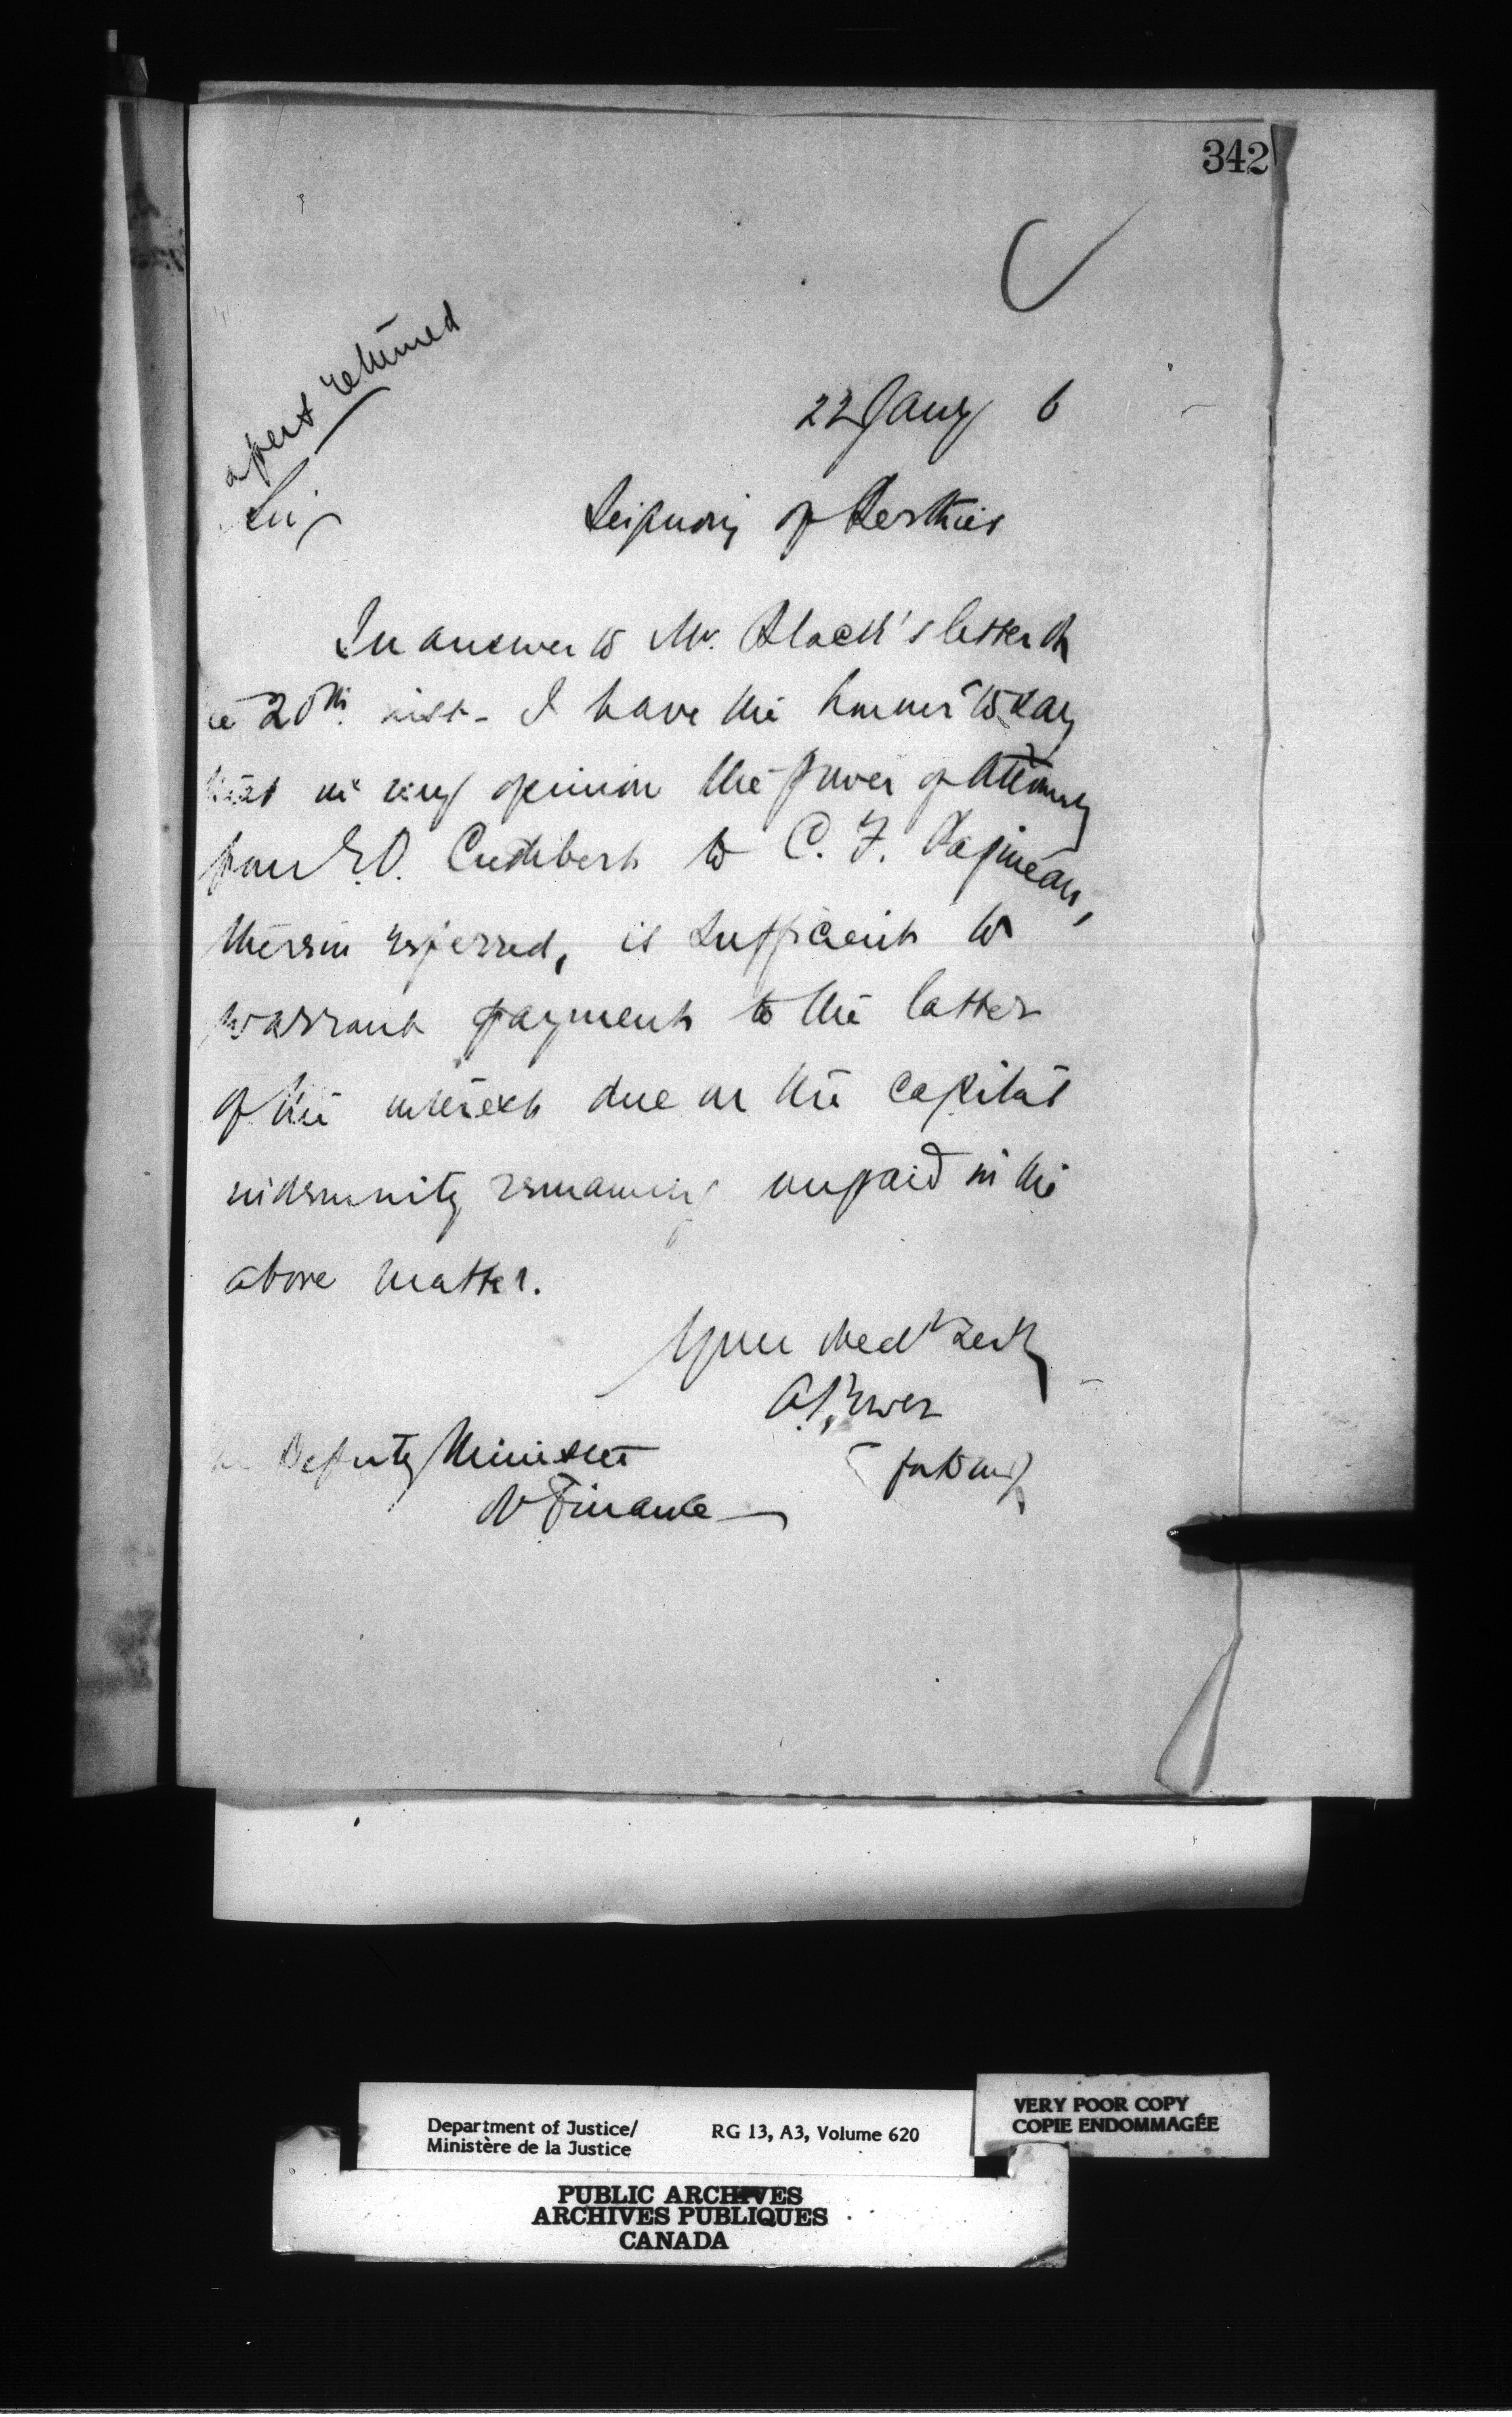 342
apers returned
22 Jany 6
Sir
Seigniory of Berthier
In answer to Mr. Black's letter of
e 20th inst. I have the honour to say
that in my opinion the power of Attorney
from E.O. Cuthbert to C. F. Papineau,
therein referred, is sufficient to
warrant payment to the latter
of the interest due on the capital
indemnity remaining unpaid in the
above matter.
Your obedt Servt
A. Power
for
Deputy Minister
of Finance
Department of Justice/
Ministère de la Justice
RG 13, A3, Volume 620
VERY POOR COPY
COPIE ENDOMMAGÉE
PUBLIC ARCHIVES
ARCHIVES PUBLIQUES
CANADA